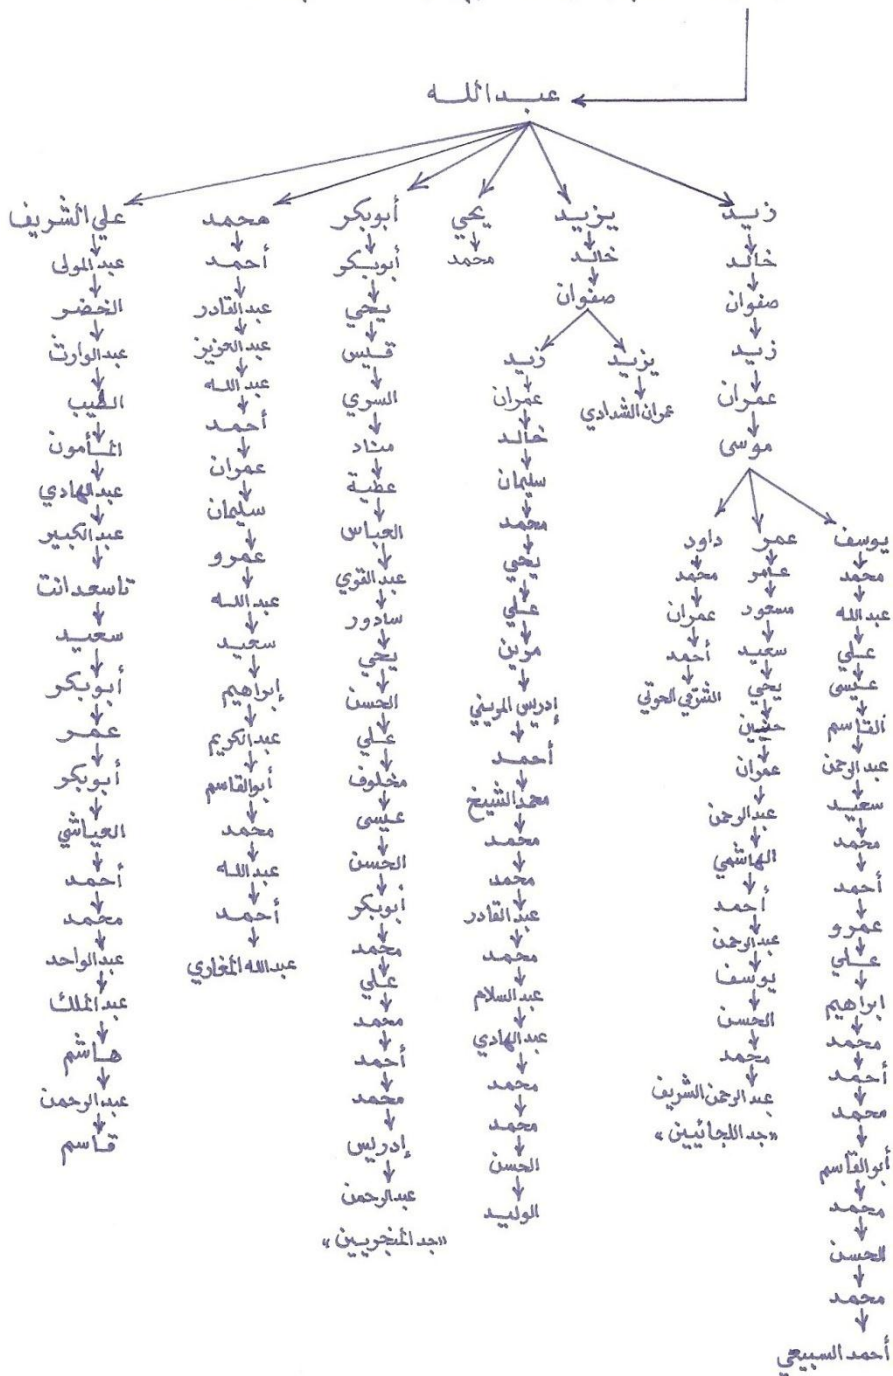 عبدالله
زيد
خالد
صفوان
زيد
عمران
موسى
يوسف
محمد
عبدالله
علي
عيسى
القاسم
عبدالرحمن
سعيد
محمد
أحمد
عمرو
علي
ابراهيم
محمد
أحمد
محمد
أبوالقاسم
محمد
الحسن
محمد
أحمد السبيعي
عمر
عامر
مسعود
سعيد
يحي
حنين
عمران
عبدالرحمن
الهاشمي
أحمد
عبدالرحمن
يوسف
الحسن
محمد
عبدالرحمن الشريف
«جد اللجائيين»
داود
محمد
عمران
أحمد
يزيد
خالد
صفوان
يزيد
عمران الشدادي
زيد
عمران
خالد
سليمان
محمد
يحي
علي
مرين
إدريس المريني
أحمد
محمد الشيخ
محمد
محمد
عبدالقادر
محمد
عبدالسلام
عبدالهادي
محمد
محمد
الحسن
الوليد
يحي
محمد
أبوبكر
أبوبكر
يحي
قيس
السري
مناد
عطية
العباس
عبدالقوي
سادور
يحي
الحسن
علي
مخلوف
عيسى
الحسن
أبوبكر
محمد
علي
محمد
أحمد
محمد
إدريس
عبدالرحمن
«جد المنجريين»
محمد
أحمد
عبدالقادر
عبدالعزيز
عبدالله
أحمد
عمران
سليمان
عمرو
عبدالله
سعيد
إبراهيم
عبدالكريم
أبوالقاسم
محمد
عبدالله
أحمد
عبدالله المغاري
علي الشريف
عبدالمولى
الخضر
عبدالوارث
الطيب
المأمون
عبدالهادي
عبدالكبير
تاسعدانت
سعيد
أبوبكر
عمر
أبوبكر
العياشي
أحمد
محمد
عبدالواحد
عبدالملك
هاشم
عبدالرحمن
قاسم